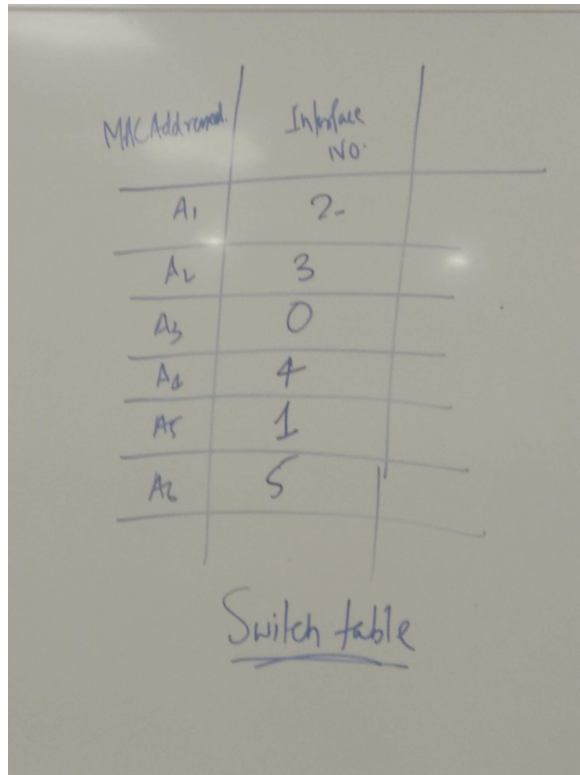 MAC Addressed. Interface
NO.
A1 2
A2 3
A3 0
A4 4
A5 1
A6 5
Switch table